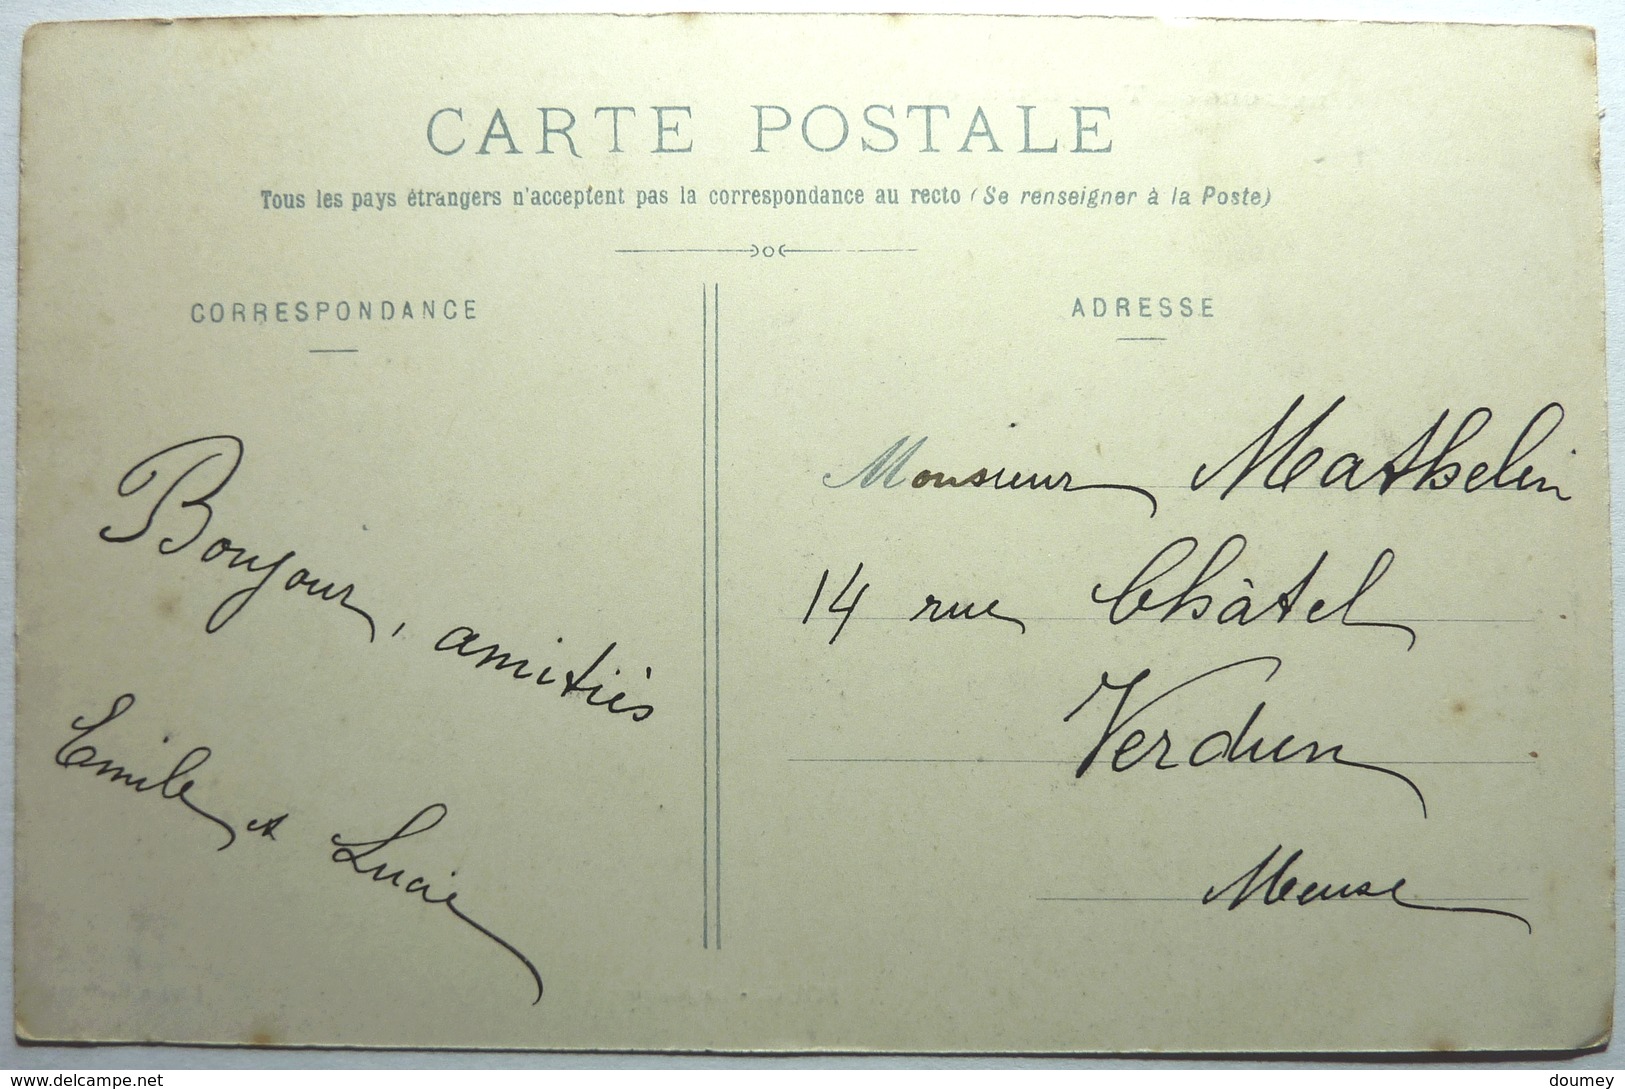 CARTE POSTALE
Tous les pays étrangers n'acceptent pas la correspondance au recto (Se renseigner à la Poste)
CORRESPONDANCE
Bonjour, amitiés
Emile et Lucie
ADRESSE
Monsieur Mathelin
14 rue Châtel
Verdun
Meuse
© delcampe.net
doumey